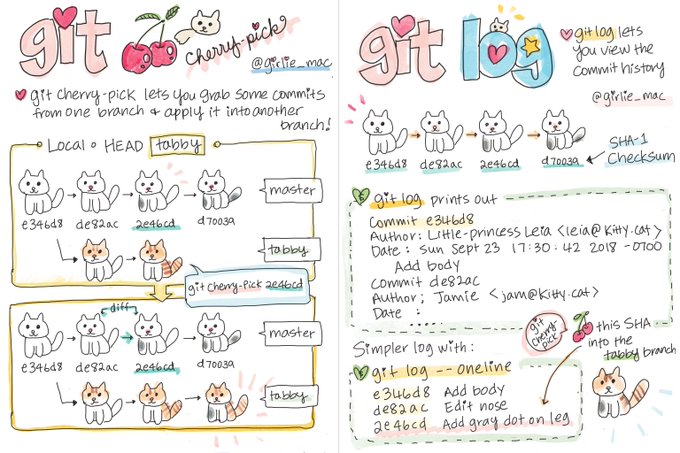 git cherry-pick
@girlie_mac
git cherry-pick lets you grab some commits
from one branch & apply it into another
branch!
Local • HEAD tabby
master
e346d8 de82ac 2e46cd d7003a
tabby
git cherry-pick 2e46cd
diff
master
e346d8 de82ac 2e46cd d7003a
tabby
git log
git log lets
you view the
commit history
@girlie_mac
e346d8 de82ac 2e46cd d7003a
SHA-1
Checksum
git log prints out
Commit e346d8
Author: Little-princess Leia <leia@kitty.cat>
Date: Sun Sept 23 17:30:42 2018 -0700
Add body
Commit de82ac
Author; Jamie <jam@kitty.cat>
Date : ....
git cherry-pick
this SHA
into the
tabby branch
Simpler log with:
git log --oneline
e346d8 Add body
de82ac Edit nose
2e46cd Add gray dot on leg